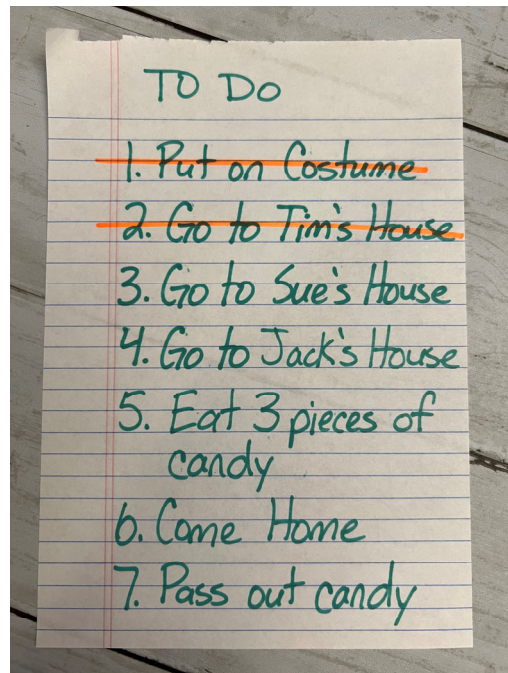 TO DO
1. Put on Costume
2. Go to Tim's House
3. Go to Sue's House
4. Go to Jack's House
5. Eat 3 pieces of
candy
6. Come Home
7. Pass out candy